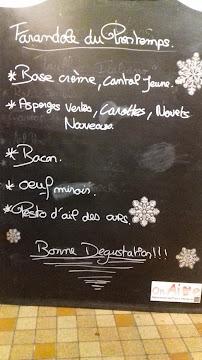 Farandole du Printemps.
* Base crème, Cantal Jeune.
* Asperges Vertes, Carottes, Navets
Nouveaux.
* Bacon.
* oeuf miroir.
* Pesto d'ail des ours.
Bonne Degustation!!!
On Aime